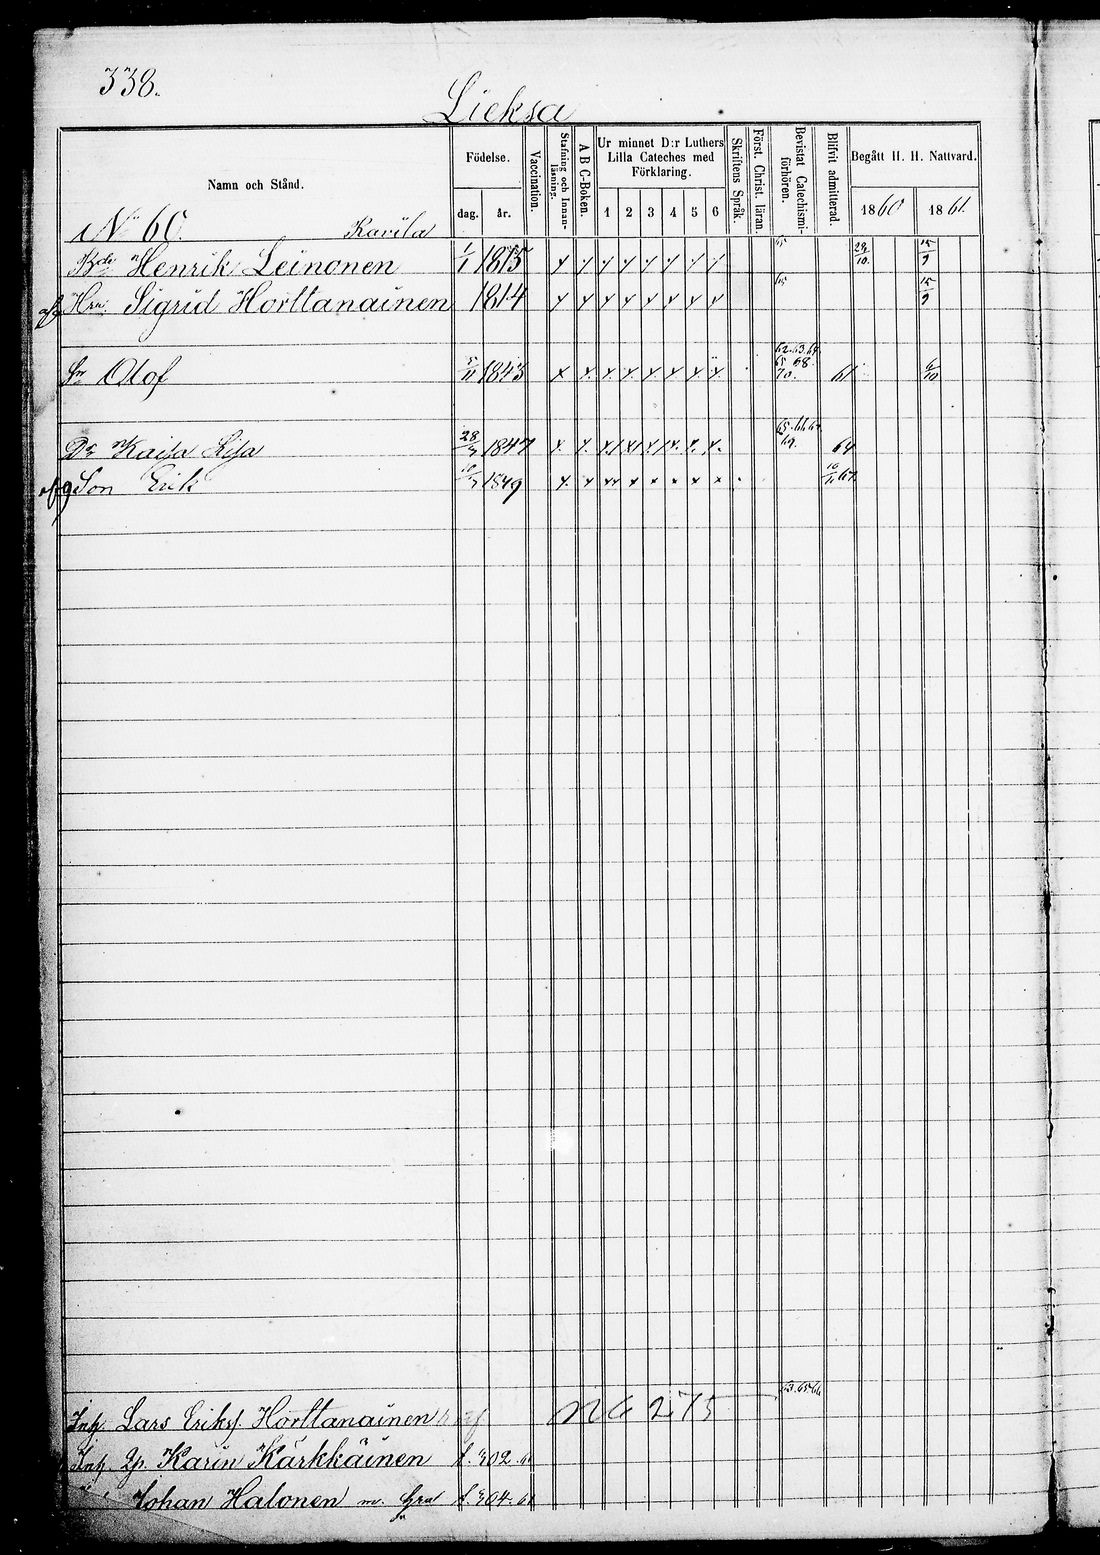 338.
Lieksa
Namn och Stånd. Födelse. dag. år. Vaccination. Stafning och Innanläsning. A B C-Boken. Ur minnet D:r Luthers Lilla Cateches med Förklaring. 1 2 3 4 5 6 Skriftens Språk. Först. Christ. läran. Bevistat Catechismiförhören. Blifvit admitterad. Begått H. H. Nattvard. 1860 1861.
No 60. Kavila
Henrik Leinonen 1/1 1815 x x x x x x x x 65 28/10. 15/9
Hru. Sigrid Horttanainen 1814 x x x x x x x x 65 15/9
Sn Olof 5/11 1843 x x x x x x x x 62.63.64. 65 68. 70. 61 6/10
Dr Kaisa Lisa 28/3 1847 x x x x x x x x 65.66.67 69. 64
Son Erik 1849 x x x x x x x x 67.
Inh. Lars Eriks. Horttanainen No 275 63.65.66
Inh. Karin Kärkkäinen f. 302.
Johan Halonen m. Hru f. 304.